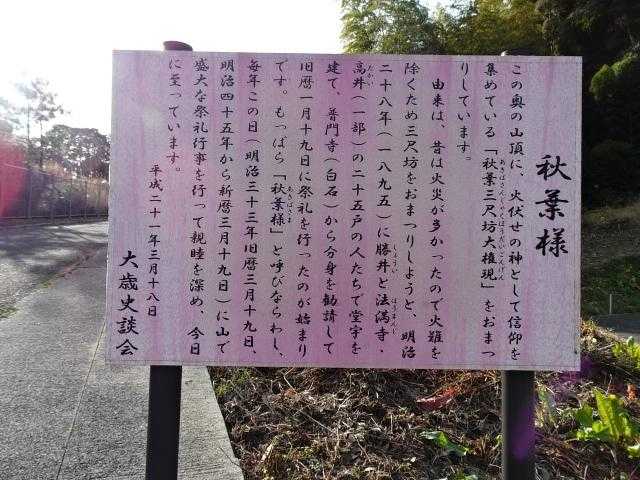 秋葉様
この奥の山頂に、火伏せの神として信仰を
集めている「秋葉三尺坊大権現」をおまつ
りしています。
由来は、昔は火災が多かったので火難を
除くため三尺坊をおまつりしようと、明治
二十八年(一八九五)に勝井と法満寺・
高井(一部)の二十五戸の人たちで堂宇を
建て、普門寺(白石)から分身を勧請して
旧暦一月十九日に祭礼を行ったのが始まり
です。もっぱら「秋葉様」と呼びならわし、
毎年この日(明治三十三年旧暦三月十九日、
明治四十五年から新暦三月十九日)に山で
盛大な祭礼行事を行って親睦を深め、今日
に至っています。
平成二十一年三月十八日
大歳史談会